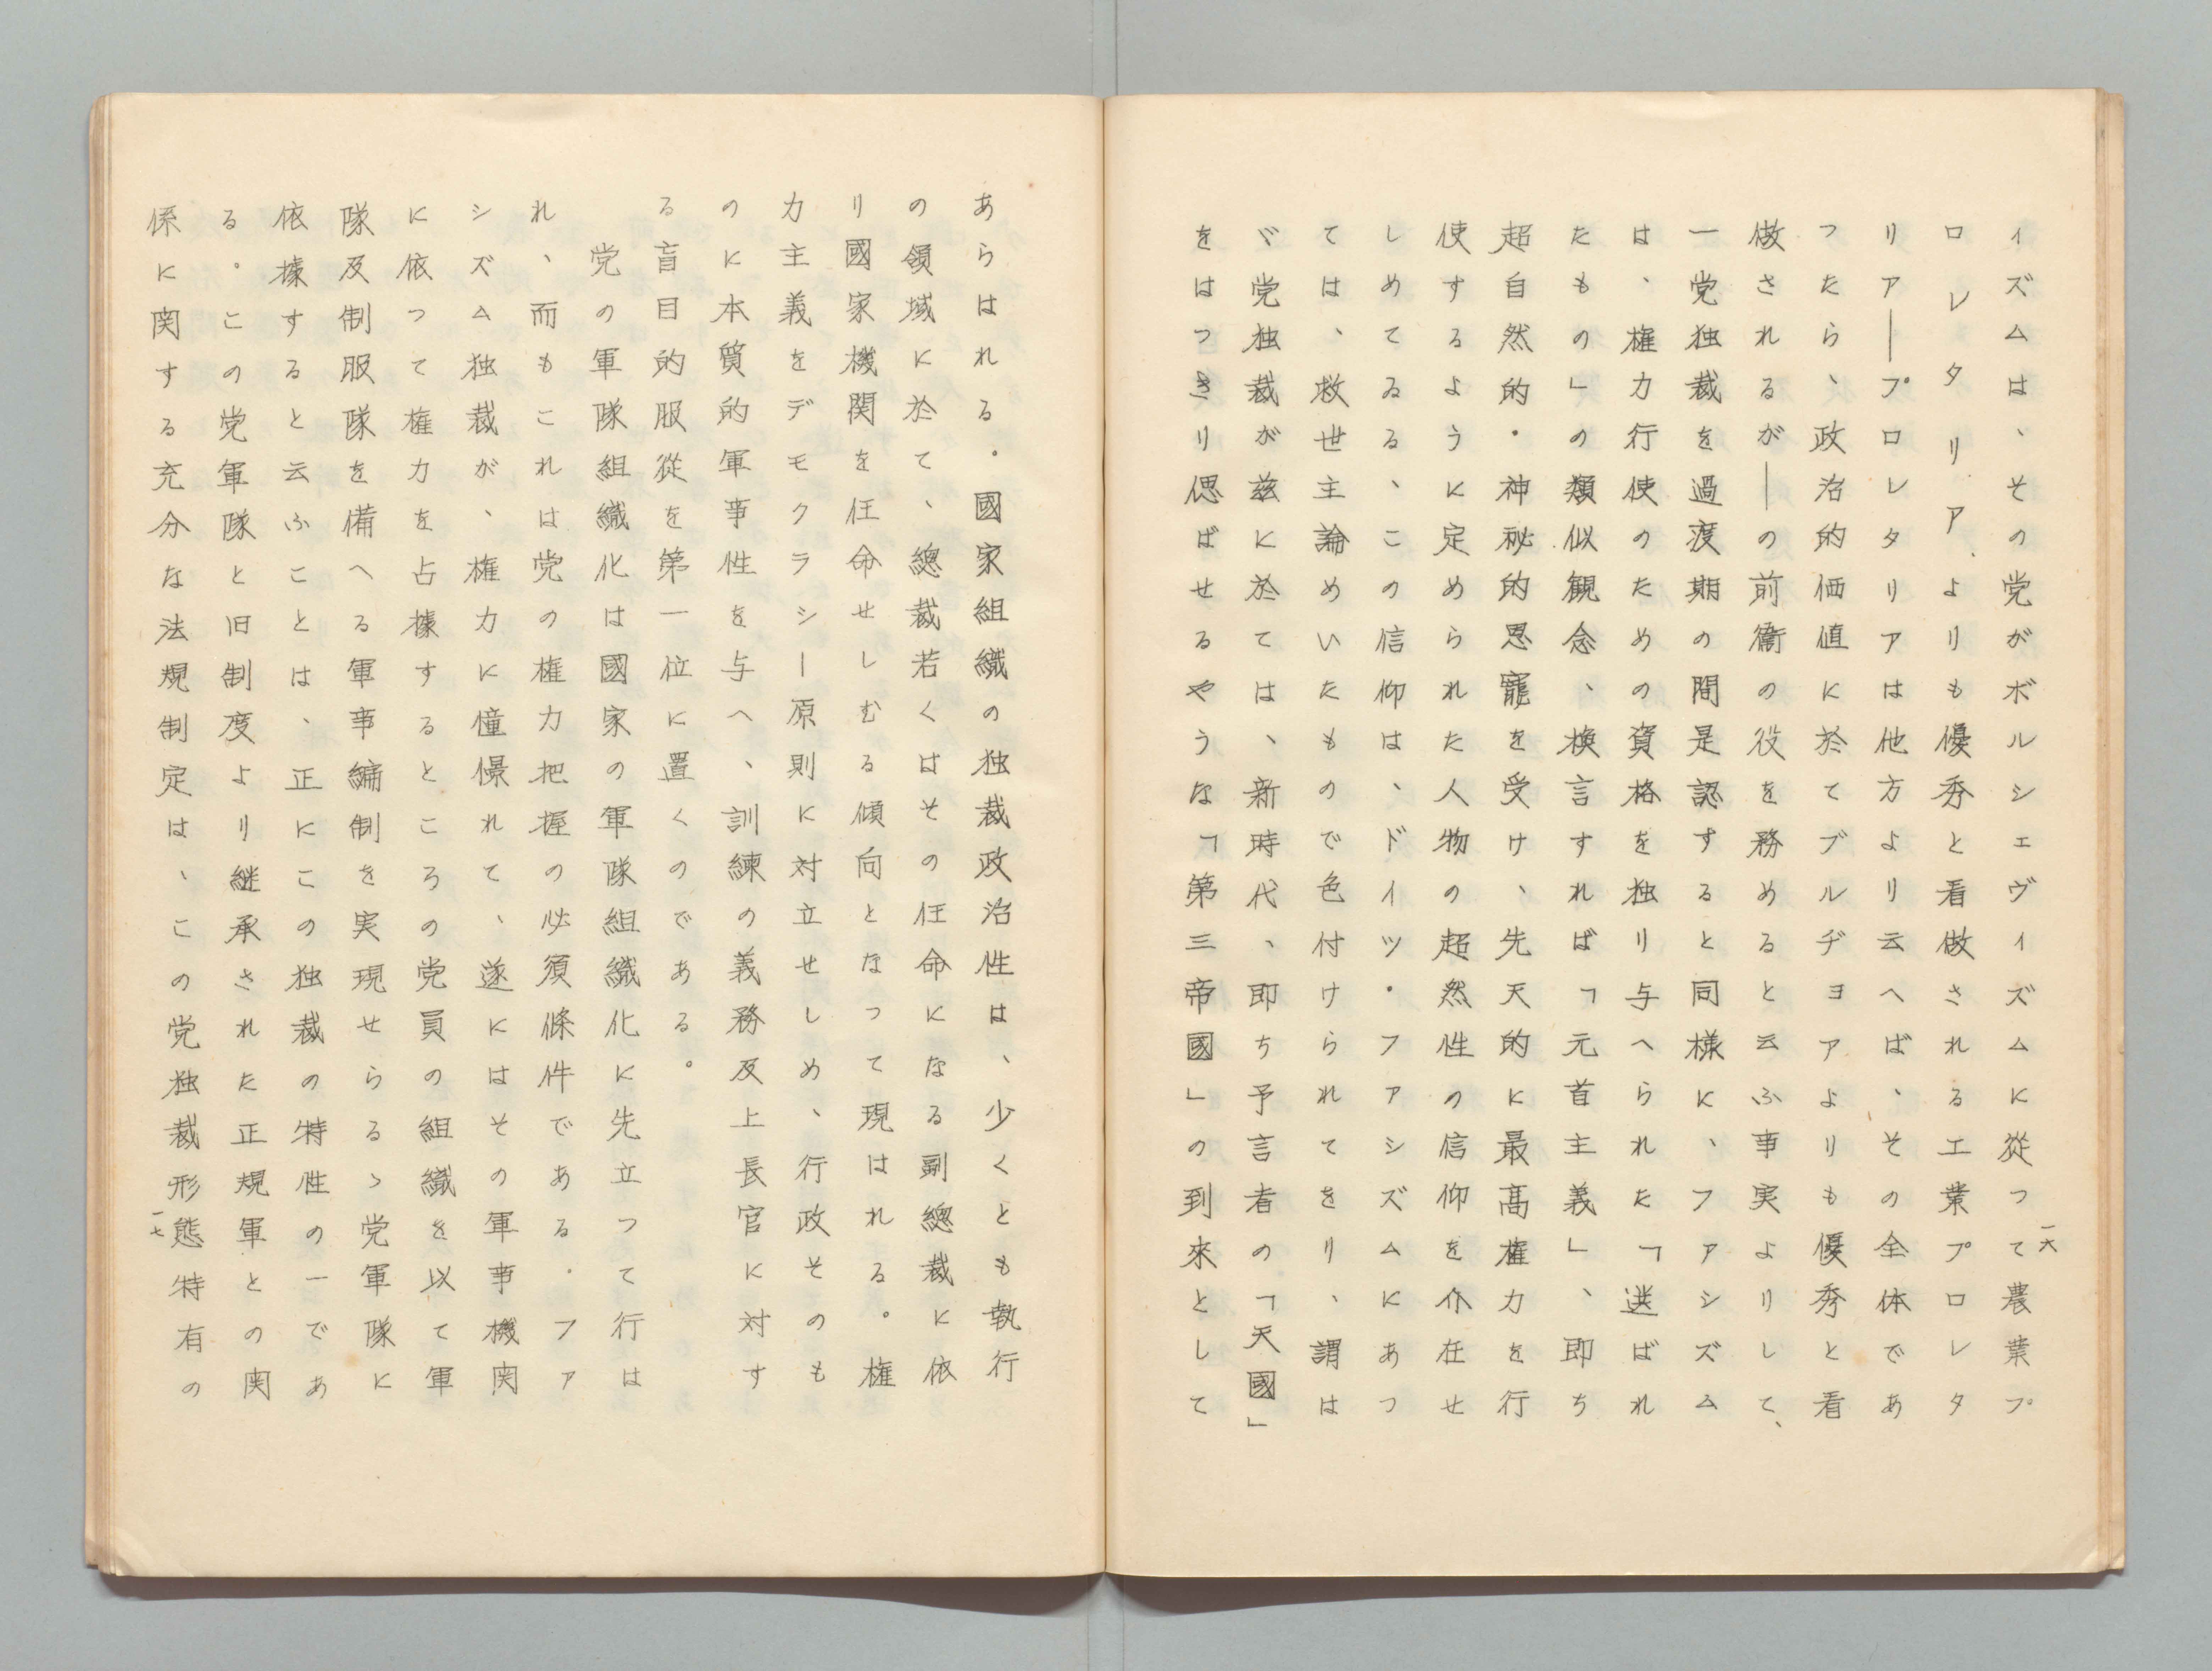 一六
ィズムは、その党がボルシェヴィズムに從つて農業プ
ロレタリア、よりも優秀と看做されるエ業プロレタ
リア―プロレタリアは他方より云へば、その全体であ
つたら、政治的価値に於てブルヂヨアよりも優秀と看
做されるが―の前衞の役を務めると云ふ事実よりして、
一党独裁を過渡期の間是認すると同様に、ファシズム
は、権力行使のための資格を独り与へられた「選ばれ
たもの」の類似観念、換言すれば「元首主義」、即ち
超自然的・神秘的恩寵を受け、先天的に最高権力を行
使するように定められた人物の超然性の信仰を介在せ
しめてゐる、この信仰は、ドイツ・ファシズムにあつ
ては、救世主論めいたもので色付けられてをり、謂は
ゞ党独裁が茲に於ては、新時代、即ち予言者の「天國」
をはつきり偲ばせるやうな「第三帝國」の到來として
あらはれる。國家組織の独裁政治性は、少くとも執行
の領域に於て、總裁若くはその任命になる副總裁に依
り國家機関を任命せしむる傾向となつて現はれる。権
力主義をデモクラシー原則に対立せしめ、行政そのも
のに本質的軍事性を与へ、訓練の義務及上長官に対す
る盲目的服從を第一位に置くのである。
党の軍隊組織化は國家の軍隊組織化に先立つて行は
れ、而もこれは党の権力把握の必須條件である．ファ
シズム独裁が、権力に憧憬れて、遂にはその軍事機関
に依つて権力を占據するところの党員の組織を以て軍
隊及制服隊を備へる軍事編制を実現せらるゝ党軍隊に
依據すると云ふことは、正にこの独裁の特性の一であ
る。この党軍隊と旧制度より継承された正規軍との関
係に関する充分な法規制定は、この党独裁形態特有の
一七